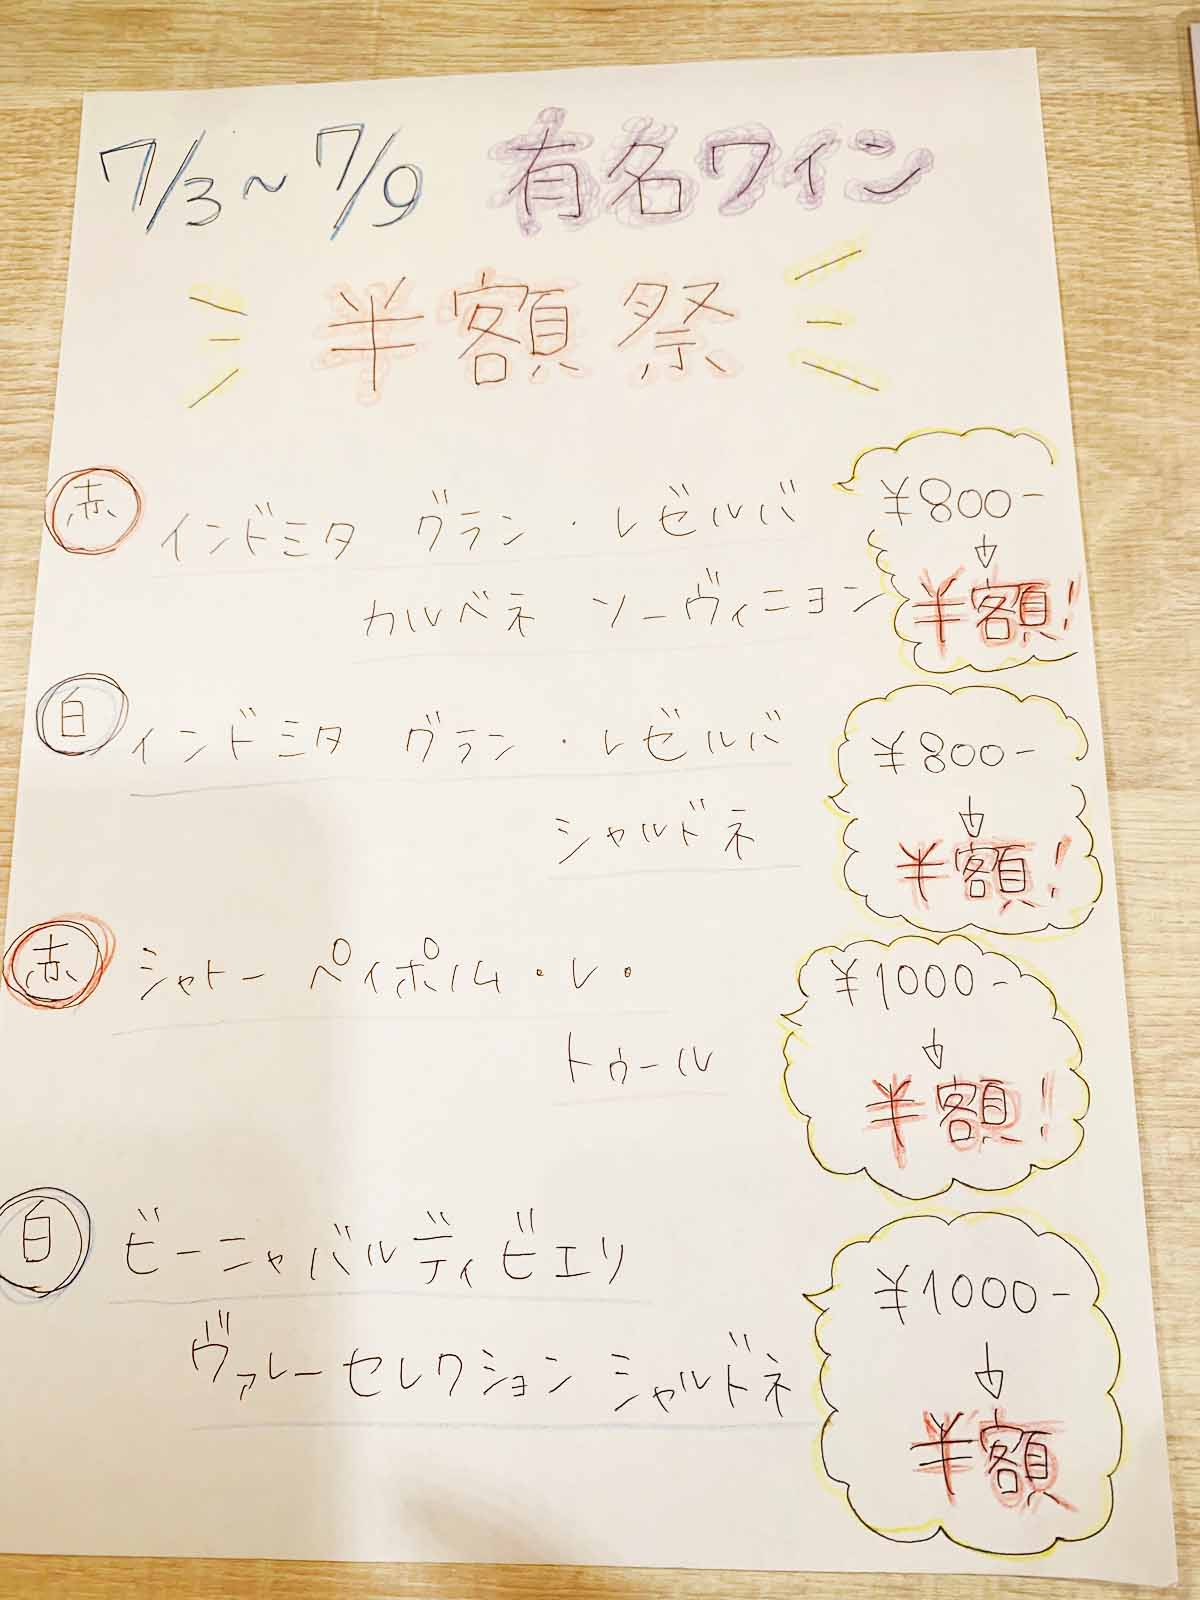 7/3～7/9 有名ワイン
半額祭
赤 インドミタ グラン・レゼルバ
カルベネ ソーヴィニヨン
¥800-
↓
半額!
白 インドミタ グラン・レゼルバ
シャルドネ
¥800-
↓
半額!
赤 シャトー ペイボノム・レ・
トゥール
¥1000-
↓
半額!
白 ビーニャバルディビエリ
ヴァレーセレクション シャルドネ
¥1000-
↓
半額